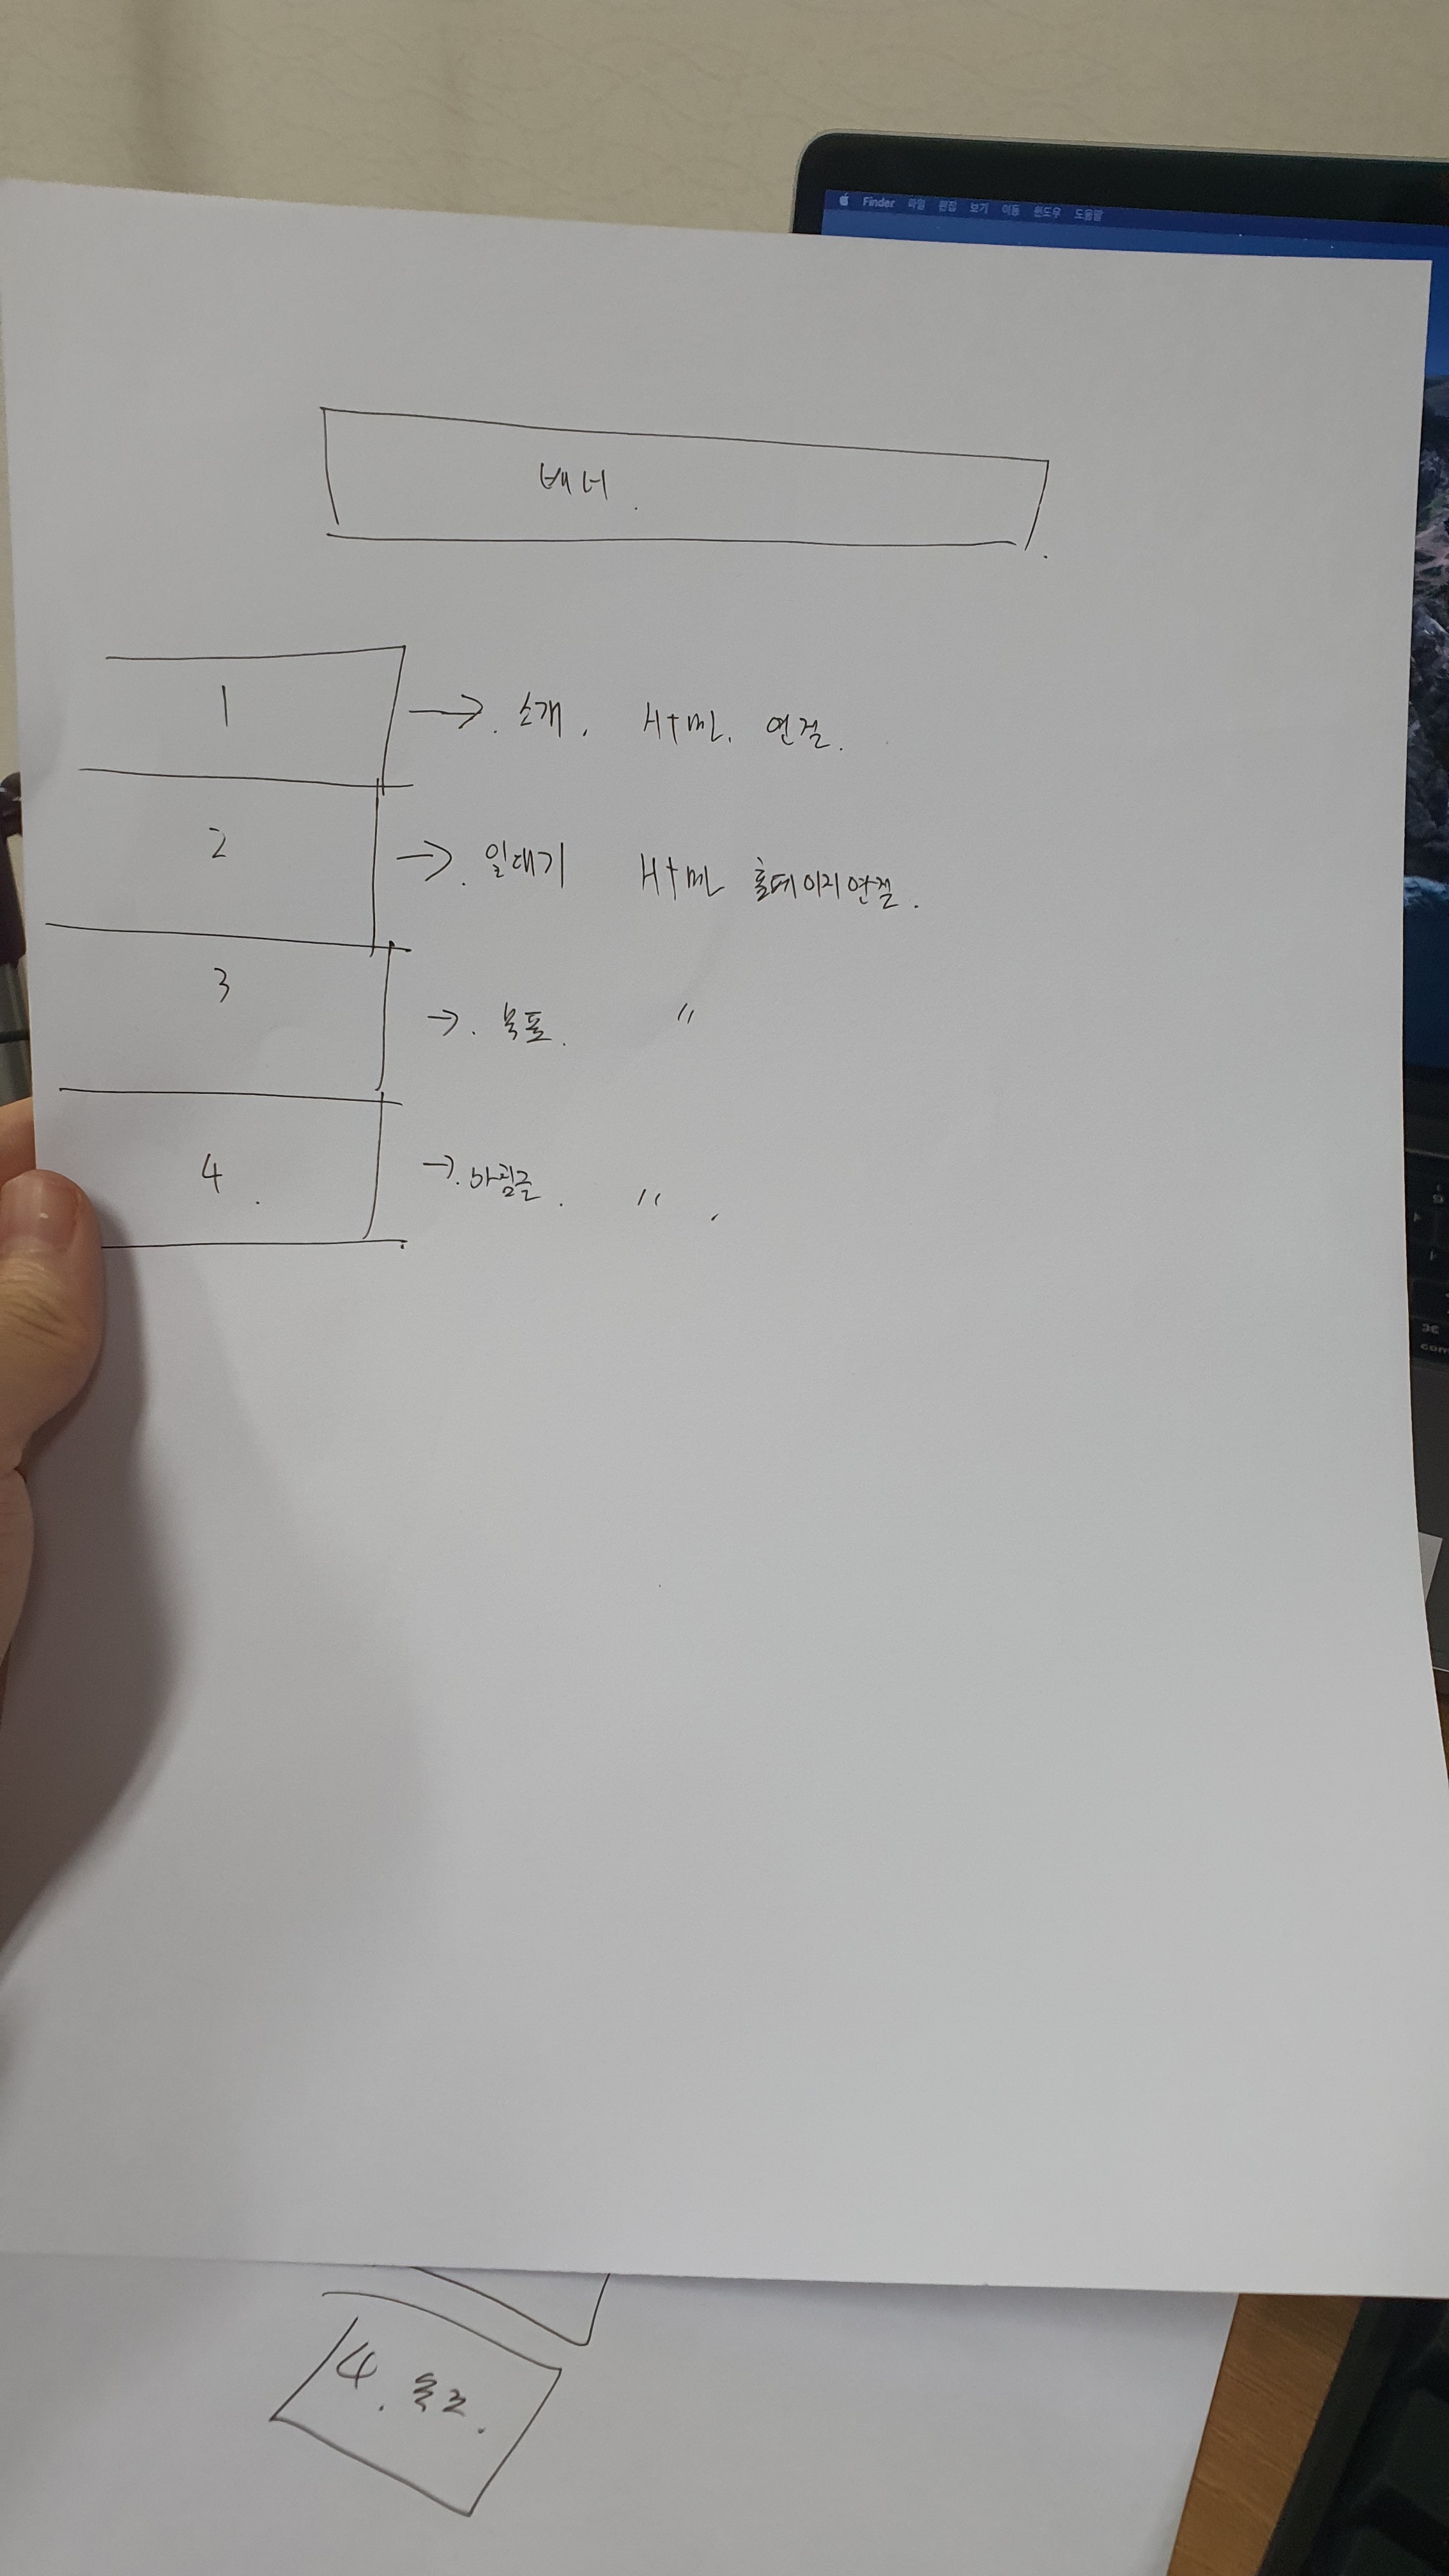 Finder 파일 편집 보기 이동 윈도우 도움말
배너.
1 → 소개. Html. 연결.
2 → 일대기 Html 홈페이지연결.
3 → 목표. "
4. → 바림글. "
4.
com